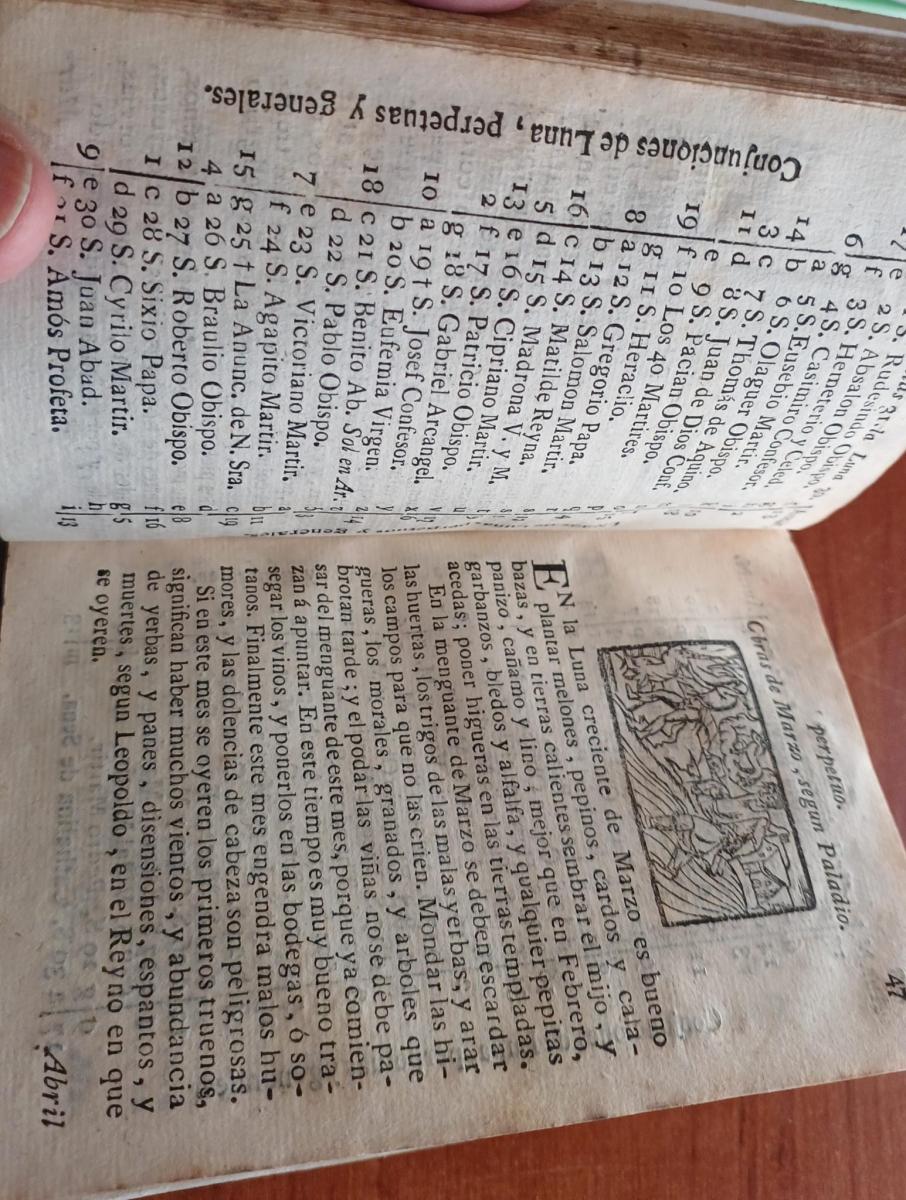 Conjunciones de Luna, perpetuas y generales.
17 e 2 S. Rudesindo
f 3 S. Absalon Obispo
6 g 3 S. Hemeterio y Celed.
a 4 S. Casimiro
14 b 5 S. Eusebio Confesor.
3 c 6 S. Olaguer
d 7 S. Thomás de Aquino.
11 e 8 S. Juan de Dios
19 f 9 S. Pacian Obispo
g 10 Los 40 Martires.
8 a 11 S. Heraclio.
b 12 S. Gregorio Papa.
16 c 13 S. Salomon Martir.
5 d 14 S. Matilde Reyna.
e 15 S. Madrona V. y M.
13 f 16 S. Cipriano Martir.
2 g 17 S. Patricio Obispo.
18 S. Gabriel Arcangel.
10 a 19 † S. Josef Confesor.
b 20 S. Eufemia Virgen.
18 c 21 S. Benito Ab. Sol en Ar.
d 22 S. Pablo Obispo.
7 e 23 S. Victoriano Martir.
f 24 S. Agapito Martir.
15 g 25 † La Anunc. de N. Sra.
4 a 26 S. Braulio Obispo.
12 b 27 S. Roberto Obispo.
1 c 28 S. Sixto Papa.
d 29 S. Cyrilo Martir.
9 e 30 S. Juan Abad.
f 31 S. Amós Profeta.
47
perpetuo.
Obras de Marzo, segun Paladio.
EN la Luna creciente de Marzo es bueno
plantar melones, pepinos, cardos y cala-
bazas, y en tierras calientes sembrar el mijo, y
panizo, cañamo y lino, mejor que en Febrero,
garbanzos, bledos y alfalfa, y qualquier pepitas
acedas; poner higueras en las tierras templadas.
En la menguante de Marzo se deben escardar
las huertas, los trigos de las malas yerbas, y arar
los campos para que no las crien. Mondar las hi-
gueras, los morales, granados, y arboles que
brotan tarde; y el podar las viñas no se debe pa-
sar del menguante de este mes, porque ya comien-
zan á apuntar. En este tiempo es muy bueno tra-
segar los vinos, y ponerlos en las bodegas, ó so-
tanos. Finalmente este mes engendra malos hu-
mores, y las dolencias de cabeza son peligrosas.
Si en este mes se oyeren los primeros truenos,
significan haber muchos vientos, y abundancia
de yerbas, y panes, disensiones, espantos, y
muertes, segun Leopoldo, en el Reyno en que
se oyeren.
Abril